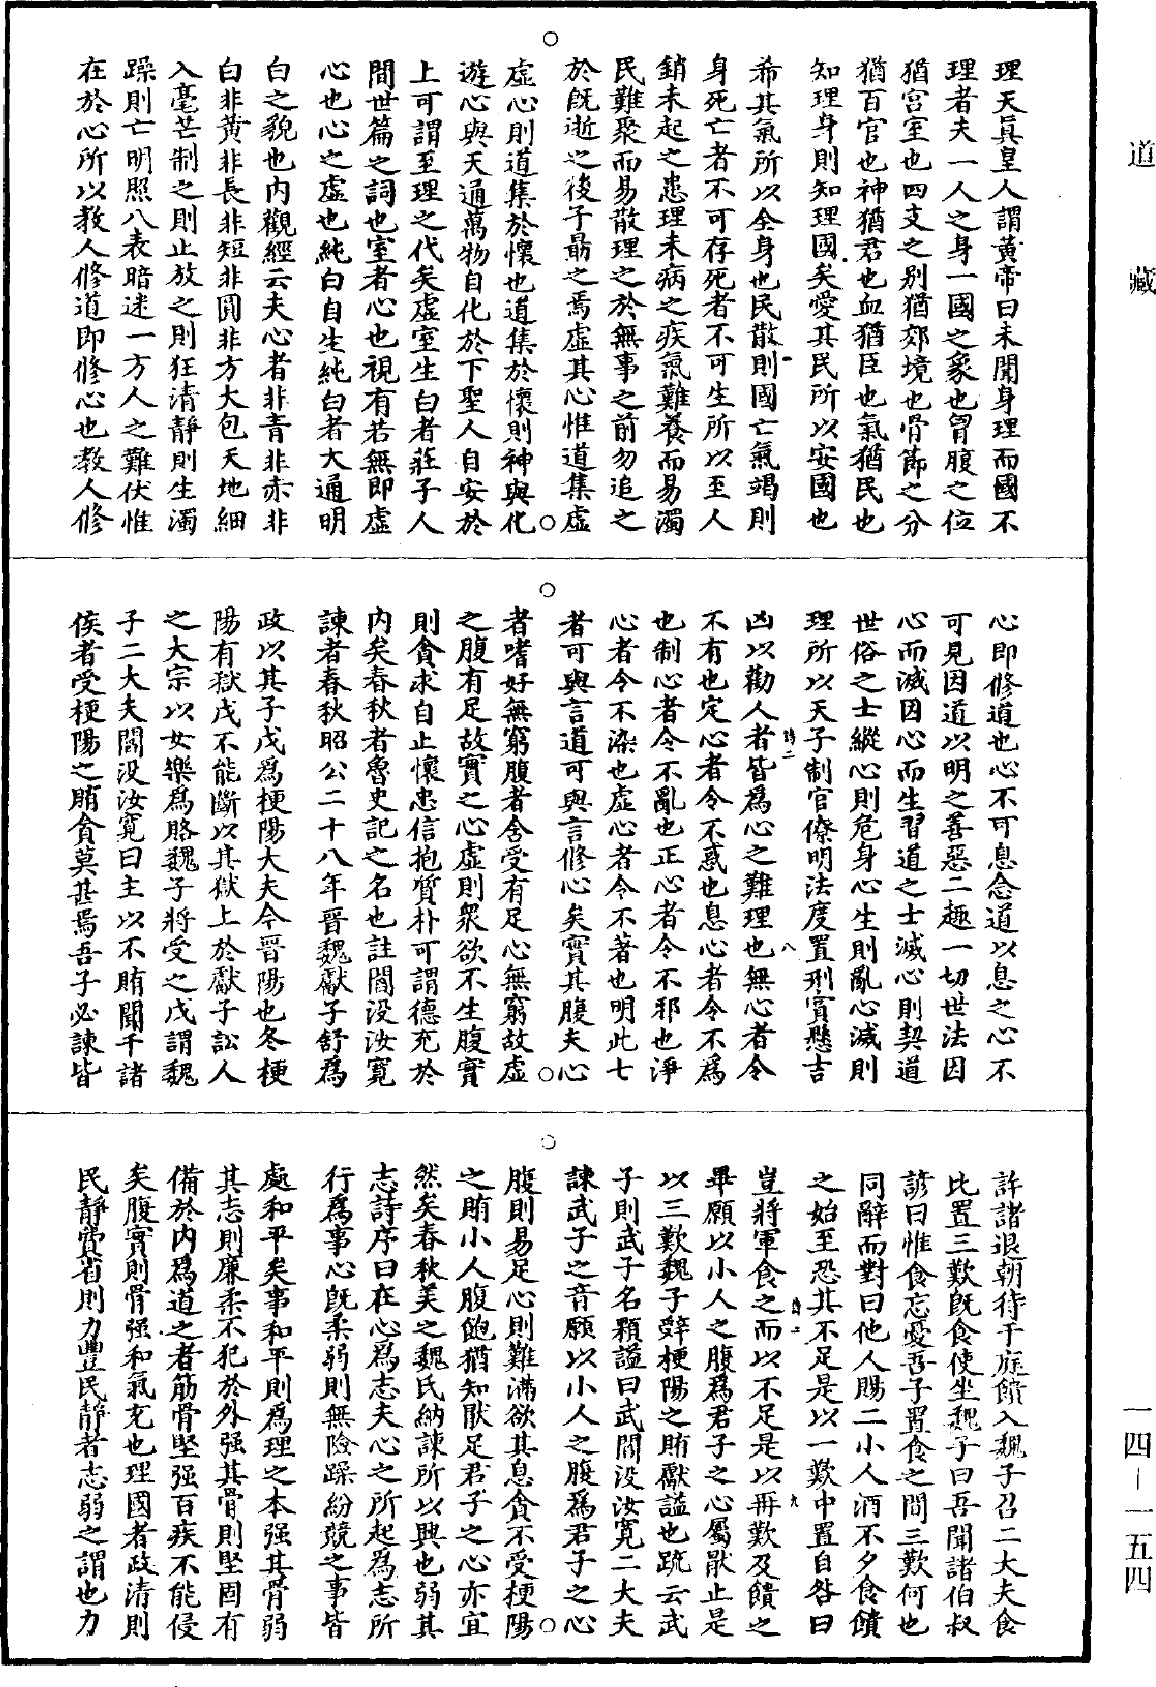 道藏
理天真皇人謂黃帝曰未聞身理而國不
理者夫一人之身一國之象也胃腹之位
猶宫室也四支之别猶郊境也骨節之分
猶百官也神猶君也血猶臣也氣猶民也
知理身則知理國矣愛其民所以安國也
希其氣所以全身也民散則國亡氣竭則
身死亡者不可存死者不可生所以至人
銷未起之患理未病之疾氣難養而易濁
民難聚而易散理之於無事之前勿追之
於既逝之後子勗之焉虛其心惟道集虛
虛心則道集於懷也道集於懷則神與化
遊心與天通萬物自化於下聖人自安於
上可謂至理之代矣虛室生白者莊子人
間世篇之詞也室者心也視有若無即虛
心也心之虛也純白自生純白者大通明
白之貌也内觀經云夫心者非青非赤非
白非黃非長非短非圓非方大包天地細
入毫芒制之則止放之則狂清靜則生濁
躁則亡明照八表暗迷一方人之難伏惟
在於心所以教人修道即修心也教人修
心即修道也心不可息念道以息之心不
可見因道以明之善惡二趣一切世法因
心而滅因心而生習道之士滅心則契道
世俗之士縱心則危身心生則亂心滅則
理所以天子制官僚明法度置刑賞懸吉
凶以勸人者皆為心之難理也無心者令
不有也定心者令不惑也息心者令不為
也制心者令不亂也正心者令不邪也淨
心者令不染也虛心者令不著也明此七
者可與言道可與言修心矣實其腹夫心
者嗜好無窮腹者含受有足心無窮故虛
之腹有足故實之心虛則衆欲不生腹實
則貪求自止懷忠信抱質朴可謂德充於
内矣春秋者魯史記之名也註閻没汝寬
諫者春秋昭公二十八年晉魏獻子舒為
政以其子戊為梗陽大夫今晉陽也冬梗
陽有獄戊不能斷以其獄上於獻子訟人
之大宗以女樂為賂魏子將受之戊謂魏
子二大夫閻没汝寬曰主以不賄聞于諸
侯者受梗陽之賄貪莫甚焉吾子必諫皆
許諾退朝待于庭饋入魏子召二大夫食
比置三歎既食使坐魏子曰吾聞諸伯叔
諺曰惟食忘憂吾子置食之間三歎何也
同辭而對曰他人賜二小人酒不夕食饋
之始至恐其不足是以一歎中置自咎曰
豈將軍食之而以不足是以再歎及饋之
畢願以小人之腹為君子之心屬厭止是
以三歎魏子辤梗陽之賄獻謚也䟽云武
子則武子名顆謚曰武閻没汝寬二大夫
諫武子之音願以小人之腹為君子之心
腹則易足心則難滿欲其息貪不受梗陽
之賄小人腹飽猶知厭足君子之心亦宜
然矣春秋美之魏氏納諫所以興也弱其
志詩序曰在心為志夫心之所起為志所
行為事心既柔弱則無險躁紛競之事皆
處和平矣事和平則為理之本强其骨弱
其志則廉柔不犯於外强其骨則堅固有
備於内為道之者筋骨堅强百疾不能侵
矣腹實則骨强和氣充也理國者政清則
民靜賞省則力豐民靜者志弱之謂也力
一四－一五四